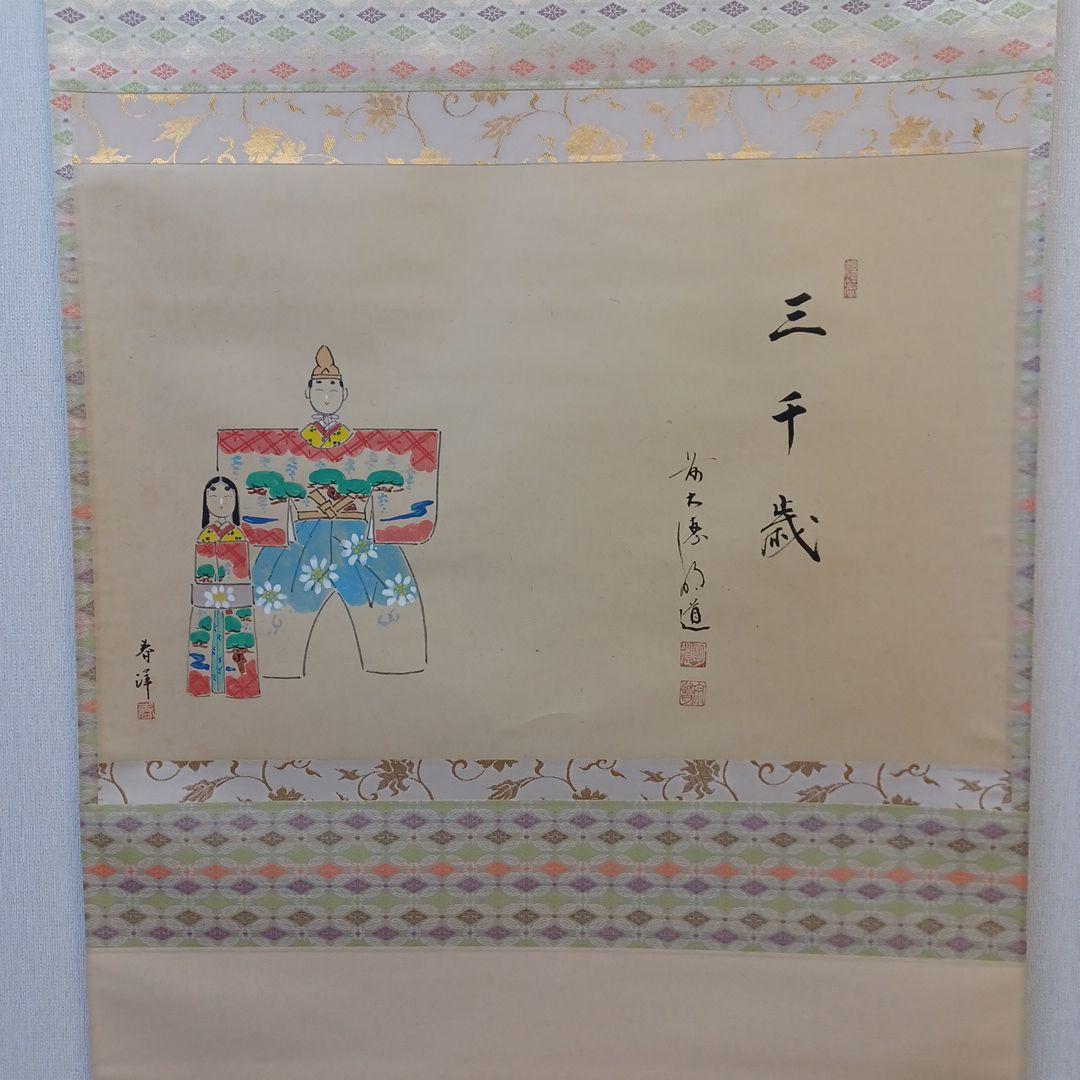 三千歳
前大徳明道
春洋